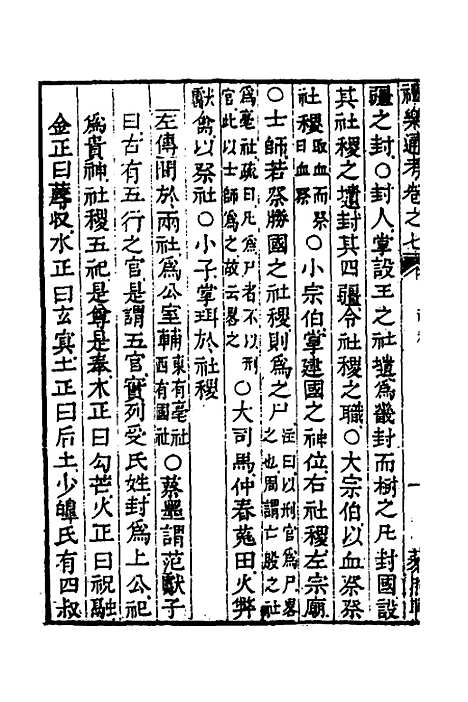 禮樂通考卷之七
疆之封○封人掌設王之社壝爲畿封而樹之凡封國設
其社稷之壝封其四疆令社稷之職○大宗伯以血祭祭
社稷取血而祭曰血祭○小宗伯掌建國之神位右社稷左宗廟
○士師若祭勝國之社稷則爲之尸注曰以刑官爲尸畧之也周謂亡殷之社
爲亳社疏曰凡爲尸者不以刑官此以士師爲之故云畧之○大司馬仲春蒐田火弊
獻禽以祭社○小子掌珥於社稷
左傳間於兩社爲公室輔東有亳社西有國社○蔡墨謂范獻子
曰古有五行之官是謂五官實列受氏姓封爲上公祀
爲貴神社稷五祀是尊是奉木正曰勾芒火正曰祝融
金正曰蓐收水正曰玄冥土正曰后土少皥氏有四叔